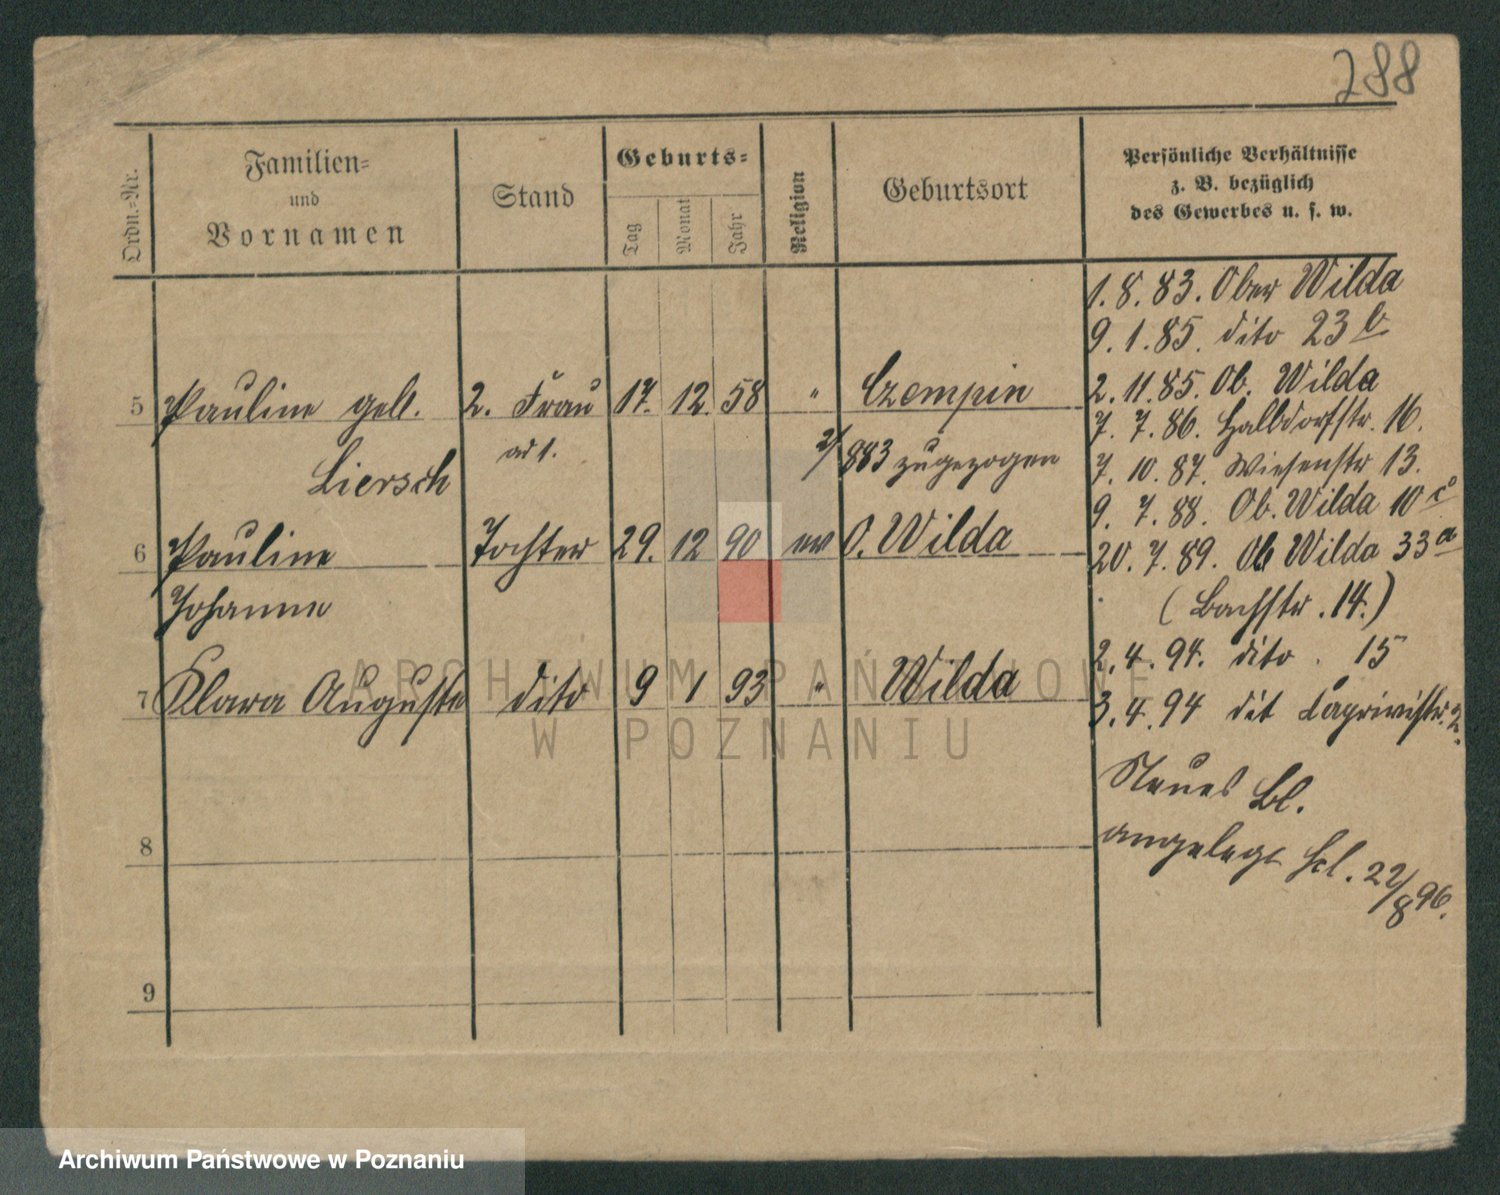 288
Ordn.=Nr.
Familien=
und
Vornamen
Stand
Geburts=
Tag
Monat
Jahr
Religion
Geburtsort
Persönliche Verhältnisse
z. B. bezüglich
des Gewerbes u. s. w.
1. 8. 83. Ober Wilda
9. 1. 85. dito 23 b
5 Pauline geb. 2. Frau 17. 12. 58 " Czempin
2. 11. 85. Ob. Wilda
ad 1.
7. 7. 86. Halbdorfstr. 16.
Liersch
883 zugezogen
7. 10. 87. Wiesenstr 13.
9. 7. 88. Ob. Wilda 10 c
6 Pauline Tochter 29. 12 90 ev O. Wilda
20. 7. 89. Ob Wilda 33 a
Johanne
(Bachstr. 14.)
2. 4. 94. dito. 15
7 Klara Auguste dito 9 1 93 " Wilda
3. 4. 94 dit Caprivistr. 2.
Neues Bl.
angelegt 22/8 96.
8
9
ARCHIWUM PAŃSTWOWE
W POZNANIU
Archiwum Państwowe w Poznaniu